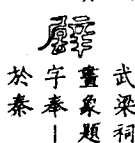 璧
武梁祠
畫象題
字奉｜
於秦